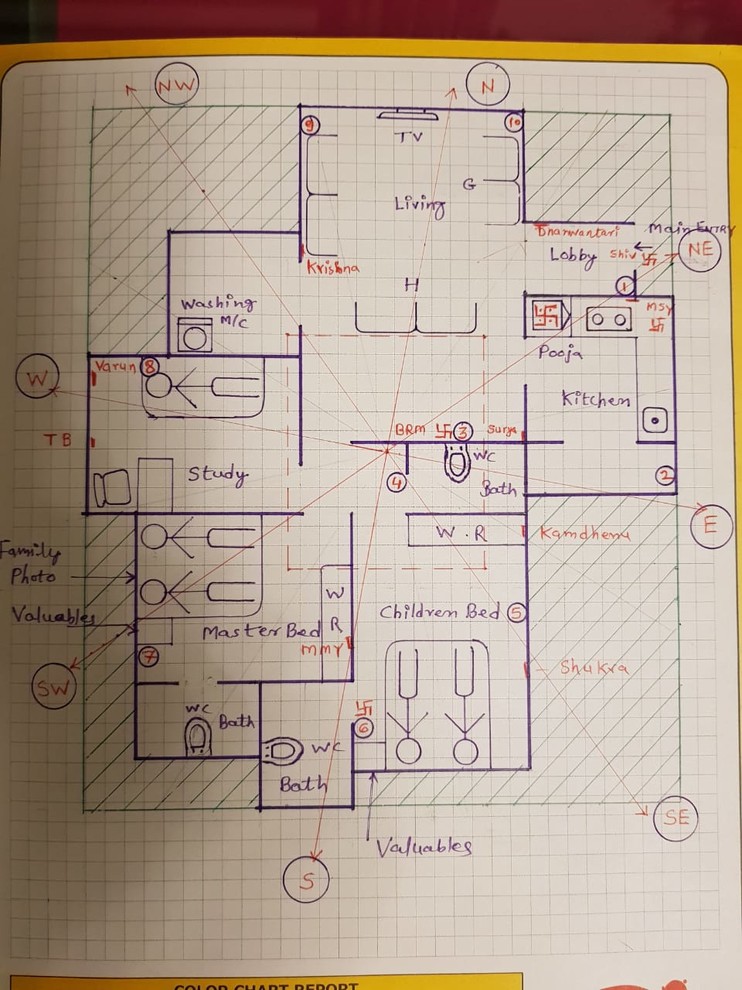 NW
N
9
10
TV
G
Living
Dharwantari
Main ENTRY
Lobby
Shiv 卐
NE
Krishna
H
1
Washing
M/C
卐
MSY
卐
Pooja
W
Varun
8
Kitchen
TB
BRM 卐 3
Surya
Study
4
WC
Bath
2
E
W.R
Kamdhenu
Family
Photo
W
R
Children Bed
5
Valuables
Master Bed
MMY
7
Shukra
SW
卐
6
WC
Bath
WC
Bath
SE
Valuables
S
COLOR CHART REPORT